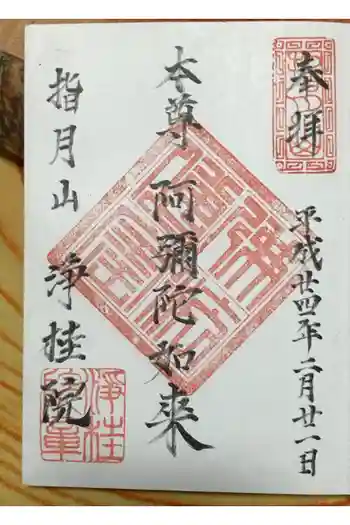 奉拝
平成廿四年二月廿一日
本尊 阿彌陀如来
指月山 浄桂院